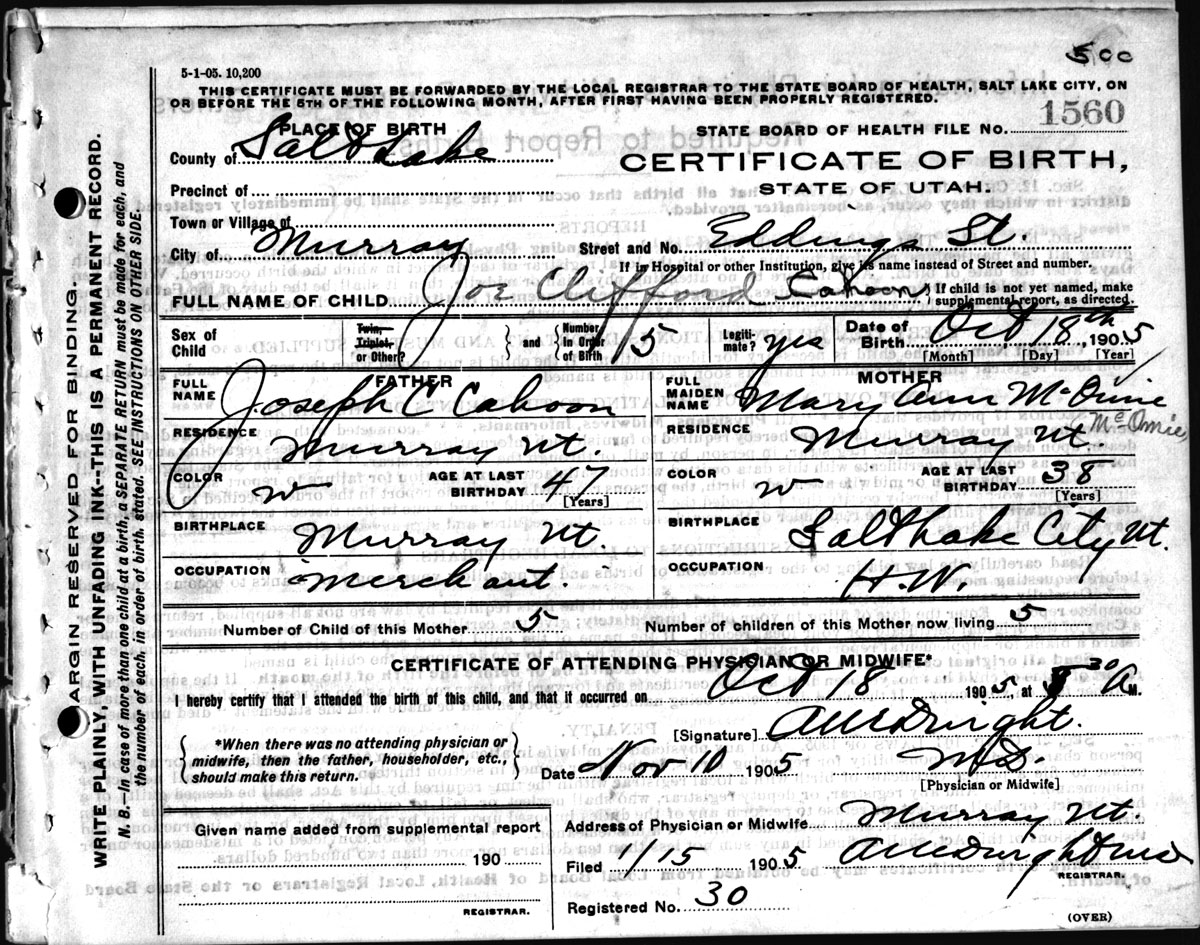 500
5-1-05. 10,200
THIS CERTIFICATE MUST BE FORWARDED BY THE LOCAL REGISTRAR TO THE STATE BOARD OF HEALTH, SALT LAKE CITY, ON
OR BEFORE THE 5TH OF THE FOLLOWING MONTH, AFTER FIRST HAVING BEEN PROPERLY REGISTERED.
PLACE OF BIRTH
STATE BOARD OF HEALTH FILE NO. 1560
County of Salt Lake
CERTIFICATE OF BIRTH,
STATE OF UTAH.
Precinct of
Town or Village of
City of Murray Street and No. Eddings St.
If in Hospital or other Institution, give its name instead of Street and number.
FULL NAME OF CHILD Joe Clifford Cahoon { If child is not yet named, make
supplemental report, as directed.
Sex of Child Twin, Triplet, or Other? } and { Number in Order of Birth 5 Legiti-mate? yes Date of Birth Oct 18th, 1905
[Month] [Day] [Year]
FATHER MOTHER
FULL NAME Joseph C Cahoon FULL MAIDEN NAME Mary Ann McOmie
McOmie
RESIDENCE Murray Ut. RESIDENCE Murray Ut.
COLOR w AGE AT LAST BIRTHDAY 47 [Years] COLOR w AGE AT LAST BIRTHDAY 38 [Years]
BIRTHPLACE Murray Ut. BIRTHPLACE Salt Lake City Ut.
OCCUPATION Merchant. OCCUPATION H.W.
Number of Child of this Mother 5 Number of children of this Mother now living 5
CERTIFICATE OF ATTENDING PHYSICIAN OR MIDWIFE*
I hereby certify that I attended the birth of this child, and that it occurred on Oct 18 1905, at 30 A M.
[Signature]
{ *When there was no attending physician or
midwife, then the father, householder, etc.,
should make this return. }
Date Nov 10 1905 M.D.
[Physician or Midwife]
Given name added from supplemental report
190
REGISTRAR.
Address of Physician or Midwife Murray Ut.
Filed 11/15 1905
REGISTRAR.
Registered No. 30
(OVER)
MARGIN RESERVED FOR BINDING.
WRITE PLAINLY, WITH UNFADING INK--THIS IS A PERMANENT RECORD.
N. B.—In case of more than one child at a birth, a SEPARATE RETURN must be made for each, and
the number of each, in order of birth, stated. SEE INSTRUCTIONS ON OTHER SIDE.